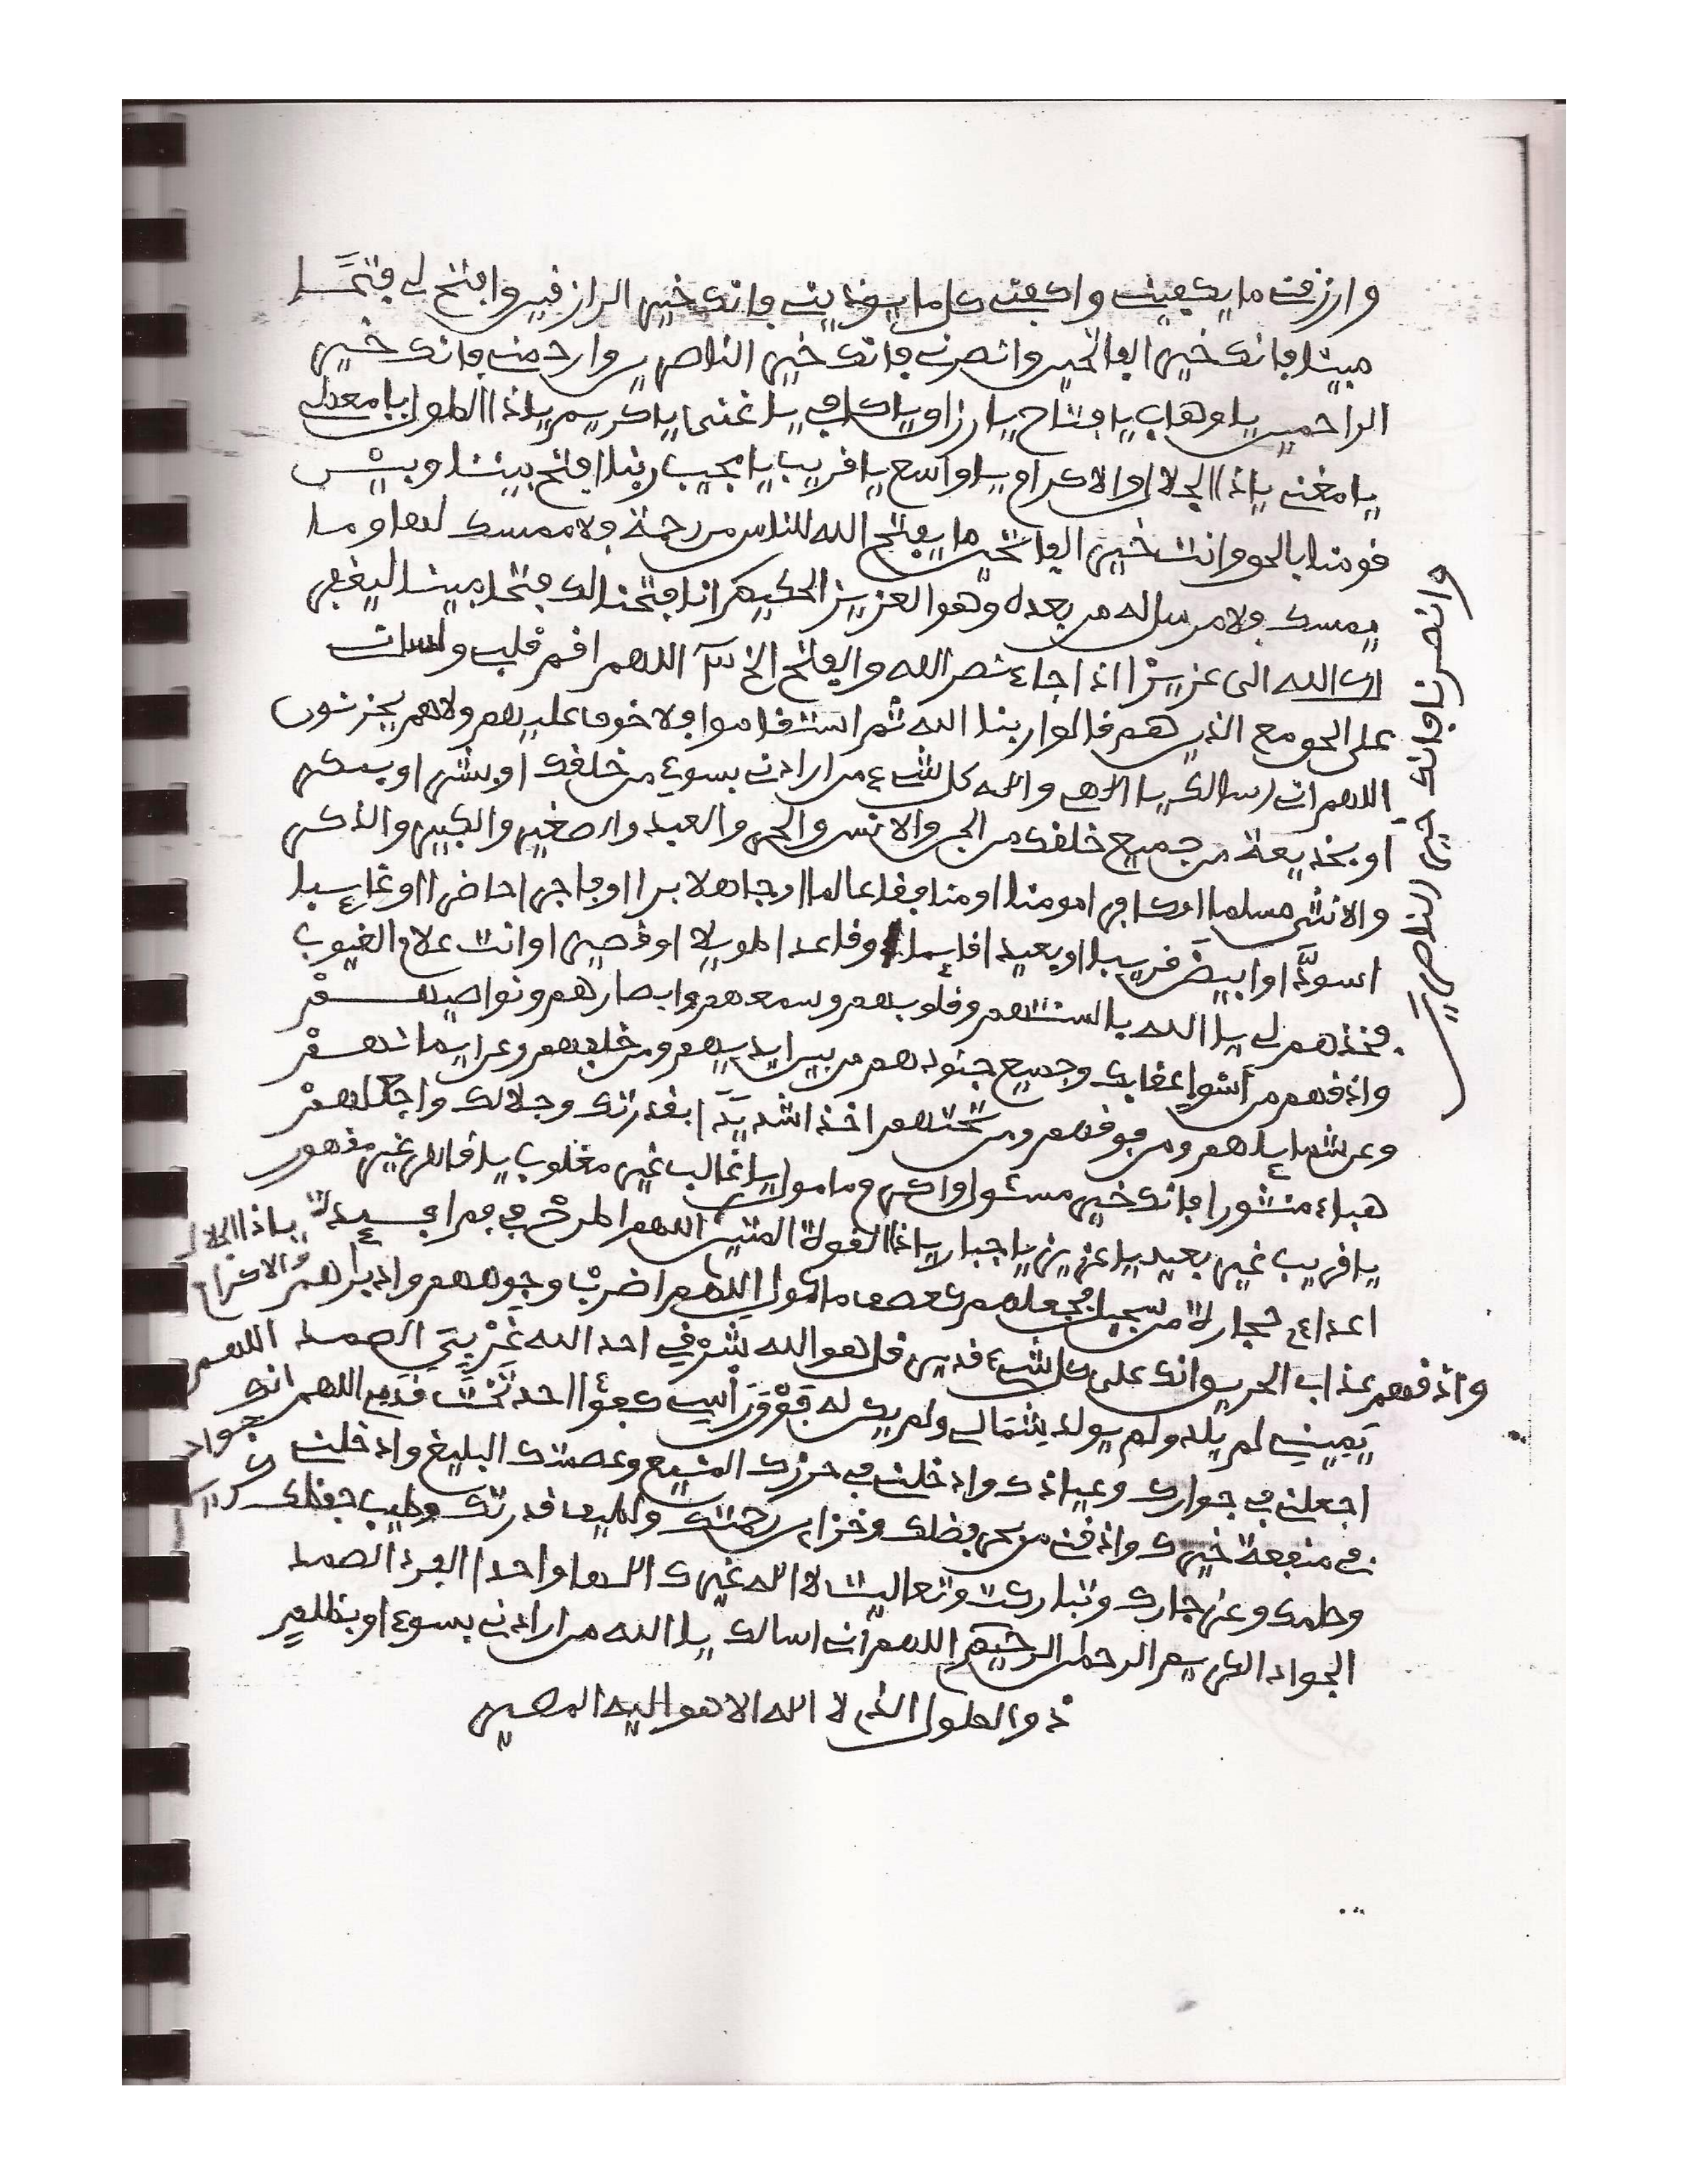 وارزقني ما يكفيني واكفني كل ما يوذيني فانك خير الرازقين وافتح لي فتحا
مبينا فانك خير الفاتحين وانصرني فانك خير الناصرين وارحمني فانك خير
الراحمين يا وهاب يا فتاح يا رزاق يا كافي يا غني يا كريم يا ذا الطول يا معطي
يا مغني يا ذا الجلال والاكرام يا واسع يا قريب يا مجيب ربنا افتح بيننا وبين
قومنا بالحق وانت خير الفاتحين ما يفتح الله للناس من رحمة فلا ممسك لها وما
يمسك فلا مرسل له من بعده وهو العزيز الحكيم انا فتحنا لك فتحا مبينا ليغفر
لك الله الى عزيزا اذا جاء نصر الله والفتح الخ اللهم اقم قلبي ولساني
على الحق مع الذين هم قالوا ربنا الله ثم استقاموا فلا خوف عليهم ولا هم يحزنون
اللهم اني اسالك يا الهي واله كل شيء من ارادني بسوء من خلقك او بشر او بمكر
او بخديعة من جميع خلقك من الجن والانس والحر والعبد والصغير والكبير والذكر
والانثى مسلما او كافرا مومنا او منافقا عالما او جاهلا برا او فاجرا حاضرا او غايبا
اسود او ابيض قريبا او بعيدا قايما او قاعدا طويلا او قصيرا وانت علام الغيوب
فخذهم لي يا الله بالسنتهم وقلوبهم وسمعهم وابصارهم ونواصيهم
واذقهم من اسوإ عقابك وجميع جنودهم من بين ايديهم ومن خلفهم وعن ايمانهم
وعن شمايلهم ومن فوقهم ومن تحتهم اخذا شديدا بقدرتك وجلالك واجعلهم
هباء منثورا فانك خير مسئول واكرم مامول يا غالب غير مغلوب يا قاهر غير مقهور
يا قريب غير بعيد يا عزيز يا جبار يا ذا القوة المتين اللهم اطرح في يا ذا الجلال
اعداءي حجارة من سجيل فجعلهم كعصف ماكول اللهم اضرب وجوههم وادبارهم والاكرام
واذقهم عذاب الحريق وانك على كل شيء قدير قل هو الله شرقي احد الله غربي الصمد اللهم
يميني لم يلد ولم يولد شمالي ولم يكن له فوق راسي كفؤا احد تحت قدمي اللهم انك جواد
اجعلني في جوارك وعياذك وادخلني في حرزك المنيع وعصمتك البليغ وادخلني
في منفعة خيرك واذقني من بحر فضلك وخزاين رحمتك ولطيف قدرتك وطيب حفظك كريم
وحلمك وعز جارك وتباركت وتعاليت لا اله غيرك الها واحدا الفرد الصمد
الجواد الكريم الرحمن الرحيم اللهم اني اسالك يا الله من ارادني بسوء او بظلم
ذو الطول الذي لا اله الا هو اليه المصير
وانصرنا فانك خير الناصرين